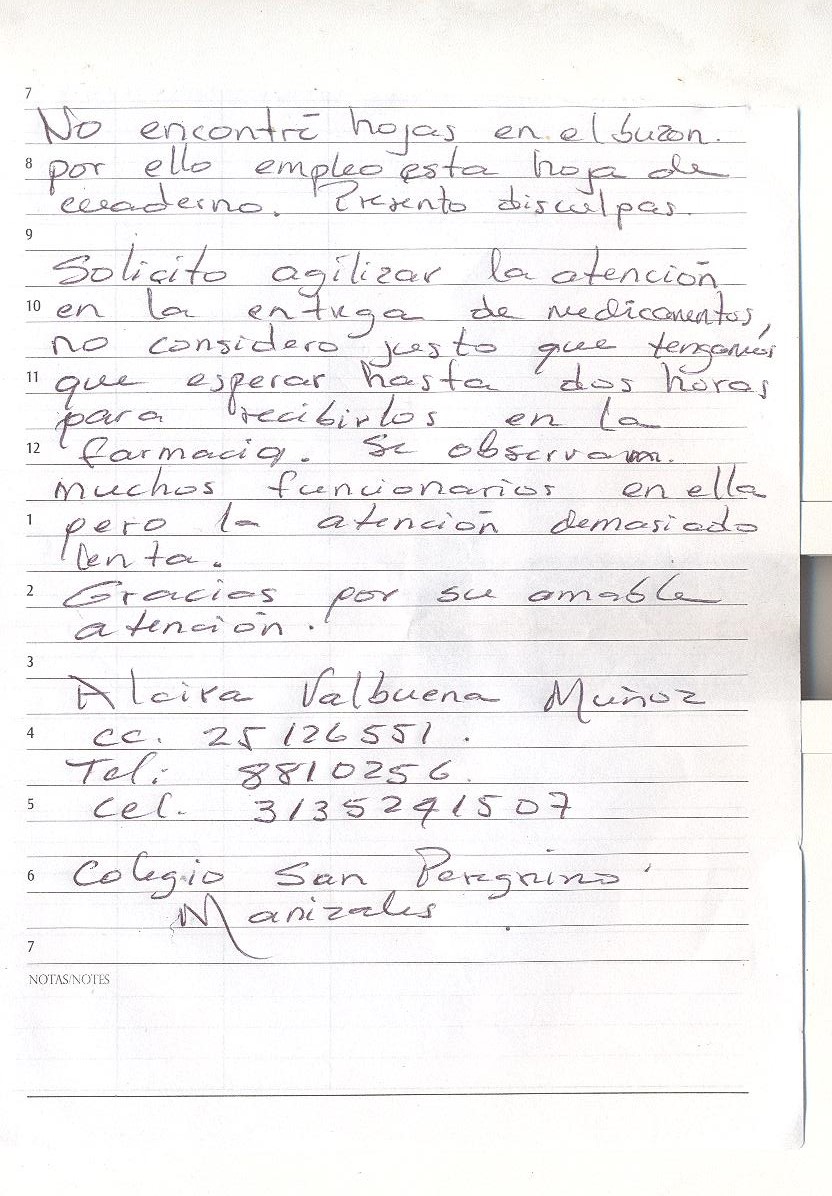 7
No encontré hojas en el buzon.
8 por ello empleo esta hoja de
cuaderno. Presento disculpas.
9
Solicito agilizar la atención
10 en la entrega de medicamentos,
no considero justo que tengamos
11 que esperar hasta dos horas
para recibirlos en la
12 farmacia. Se observan
muchos funcionarios en ella
1 pero la atención demasiado
lenta.
2 Gracias por su amable
atención.
3
Alcira Valbuena Muñoz
4 cc. 25126551.
Tel: 8810256.
5 cel. 3135291507
6 Colegio San Peregrino
Manizales
7
NOTAS/NOTES